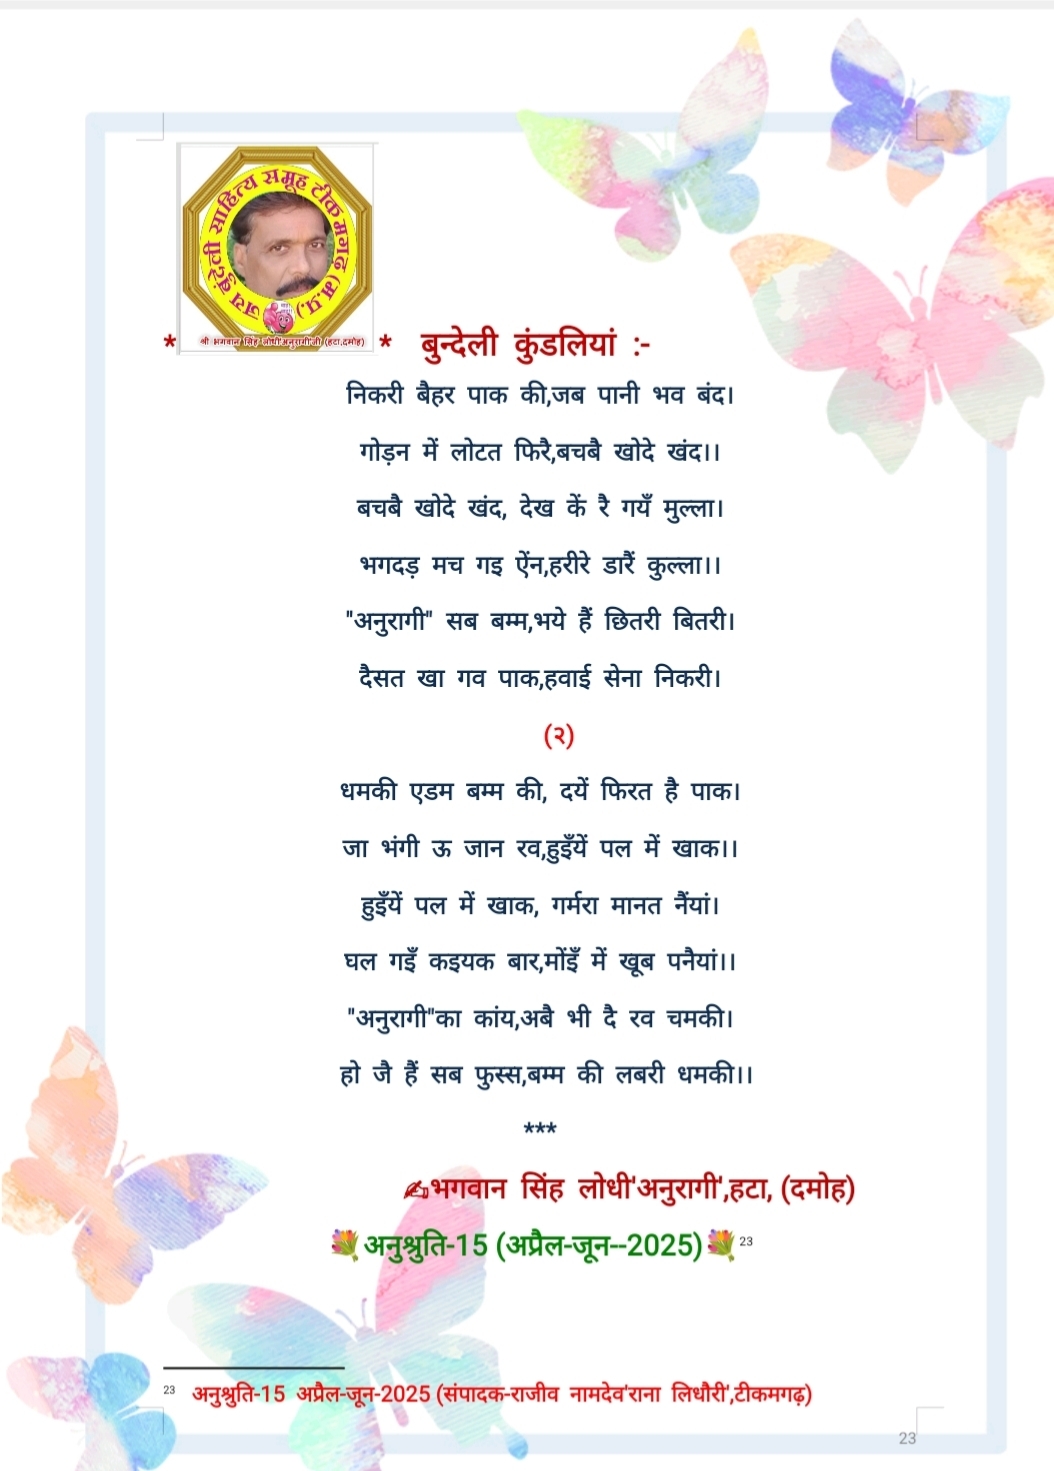 जय बुंदेली साहित्य समूह टीकमगढ़ (म.प्र.)
श्री भगवान सिंह लोधी'अनुरागी'जी (हटा,दमोह)
* * बुन्देली कुंडलियां :-
निकरी बैहर पाक की,जब पानी भव बंद।
गोड़न में लोटत फिरै,बचबै खोदे खंद।।
बचबै खोदे खंद, देख कें रै गयँ मुल्ला।
भगदड़ मच गइ ऐंन,हरीरे डारैं कुल्ला।।
"अनुरागी" सब बम्म,भये हैं छितरी बितरी।
दैसत खा गव पाक,हवाई सेना निकरी।
(२)
धमकी एडम बम्म की, दयें फिरत है पाक।
जा भंगी ऊ जान रव,हुइँयें पल में खाक।।
हुइँयें पल में खाक, गर्मरा मानत नैंयां।
घल गइँ कइयक बार,मोंइँ में खूब पनैयां।।
"अनुरागी"का कांय,अबै भी दै रव चमकी।
हो जै हैं सब फुस्स,बम्म की लबरी धमकी।।
***
✍भगवान सिंह लोधी'अनुरागी',हटा, (दमोह)
💐अनुश्रुति-15 (अप्रैल-जून--2025)💐 23
23 अनुश्रुति-15 अप्रैल-जून-2025 (संपादक-राजीव नामदेव'राना लिधौरी',टीकमगढ़)
23